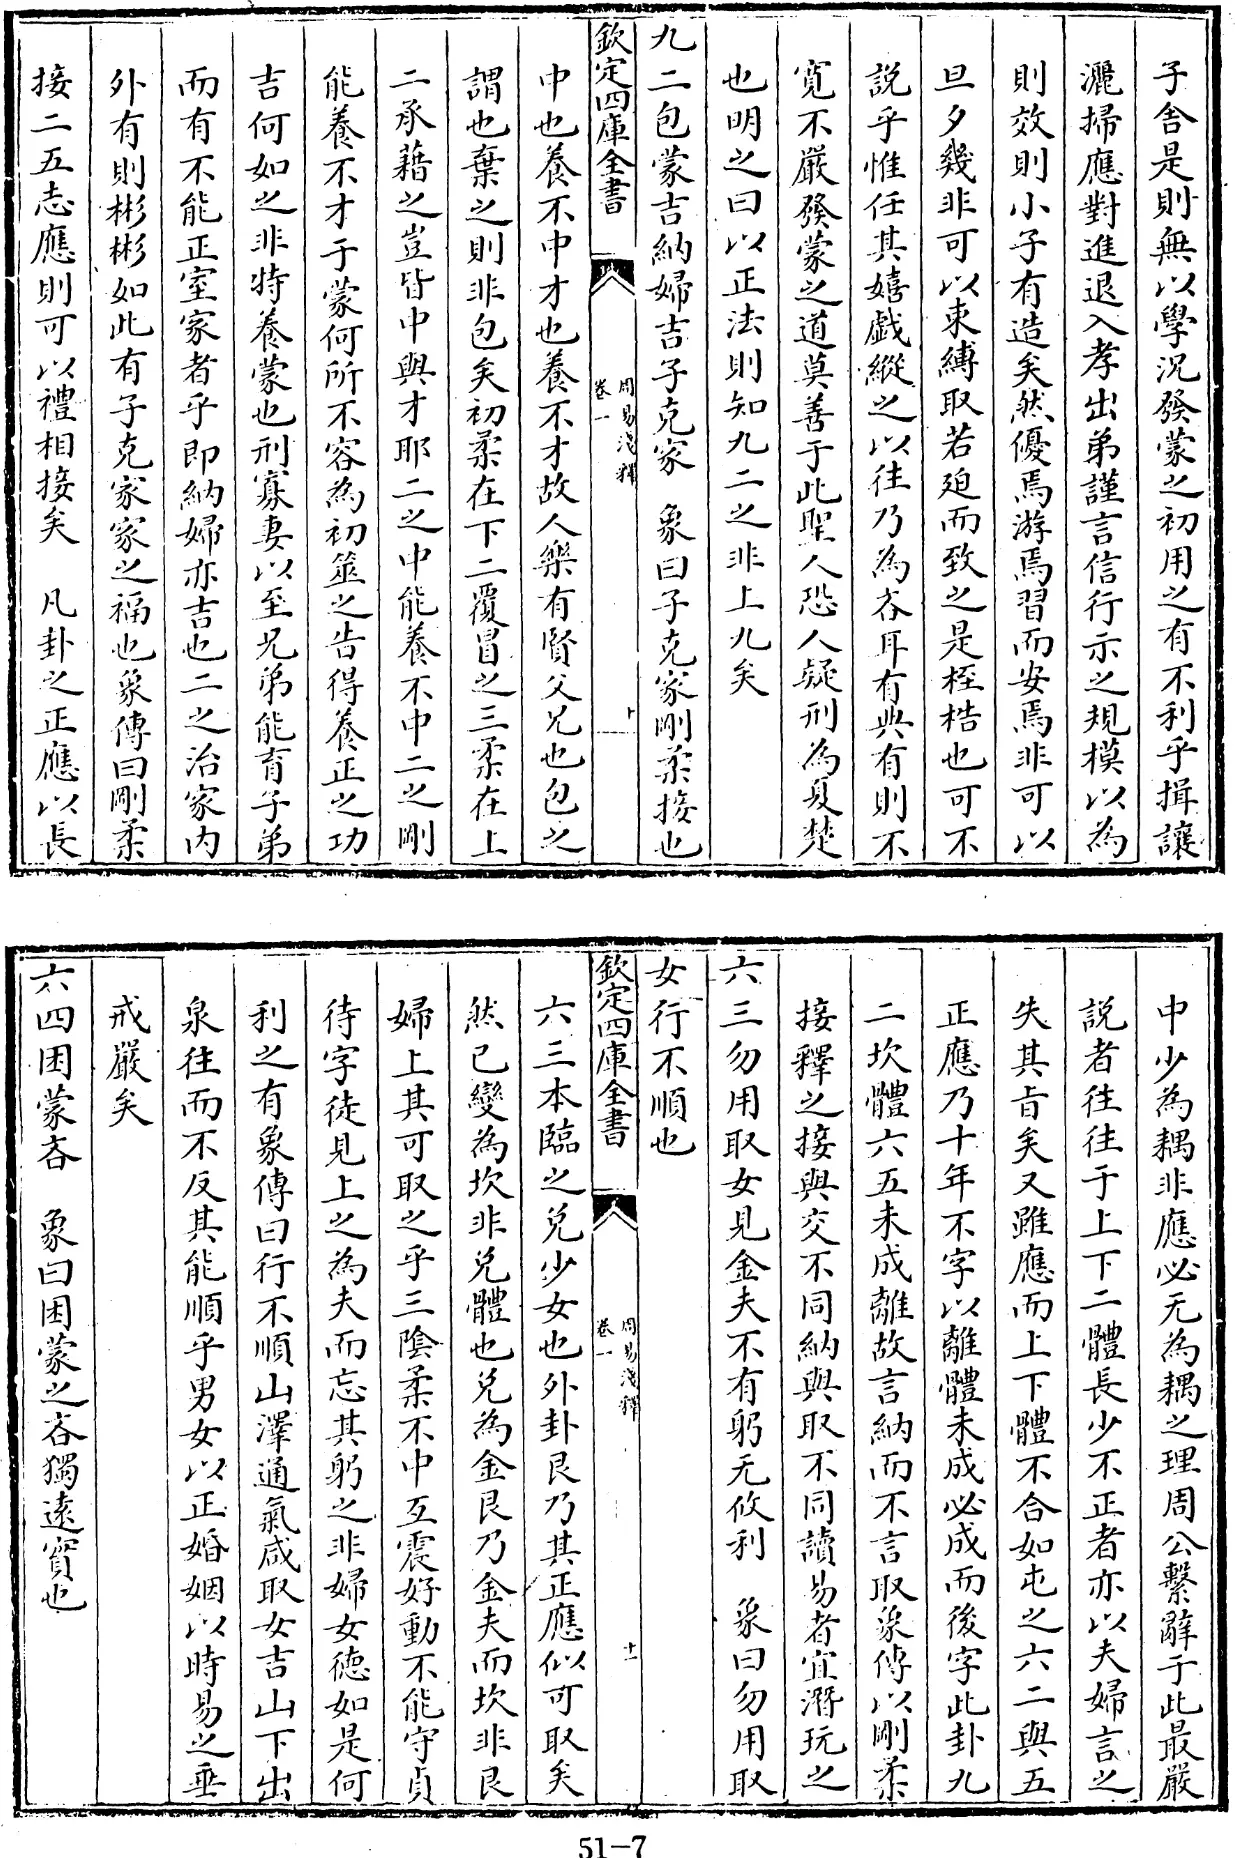 子舍是則無以學況發蒙之初用之有不利乎揖讓
灑掃應對進退入孝出弟謹言信行示之規模以為
則效則小子有造矣然優焉游焉習而安焉非可以
旦夕幾非可以束縛取若廹而致之是桎梏也可不
說乎惟任其嬉戯縱之以往乃為吝耳有典有則不
寛不嚴發蒙之道莫善于此聖人恐人疑刑為夏楚
也明之曰以正法則知九二之非上九矣
九二包蒙吉納婦吉子克家　象曰子克家剛柔接也
欽定四庫全書
周易淺釋
卷一
十
中也養不中才也養不才故人樂有賢父兄也包之
謂也棄之則非包矣初柔在下二覆冒之三柔在上
二承藉之豈皆中與才耶二之中能養不中二之剛
能養不才于蒙何所不容為初筮之告得養正之功
吉何如之非特養蒙也刑寡妻以至兄弟能育子弟
而有不能正室家者乎即納婦亦吉也二之治家内
外有則彬彬如此有子克家家之福也象傳曰剛柔
接二五志應則可以禮相接矣　凡卦之正應以長
中少為耦非應必无為耦之理周公繫辭于此最嚴
説者往往于上下二體長少不正者亦以夫婦言之
失其㫖矣又雖應而上下體不合如屯之六二與五
正應乃十年不字以離體未成必成而後字此卦九
二坎體六五未成離故言納而不言取象傳以剛柔
接釋之接與交不同納與取不同讀易者宜潛玩之
六三勿用取女見金夫不有躬无攸利　象曰勿用取
女行不順也
欽定四庫全書
周易淺釋
卷一
十一
六三本臨之兌少女也外卦艮乃其正應似可取矣
然已變為坎非兌體也兌為金艮乃金夫而坎非艮
婦上其可取之乎三陰柔不中互震好動不能守貞
待字徒見上之為夫而忘其躬之非婦女德如是何
利之有象傳曰行不順山澤通氣咸取女吉山下出
泉往而不反其能順乎男女以正婚姻以時易之垂
戒嚴矣
六四困蒙吝　象曰困蒙之吝獨逺實也
51-7